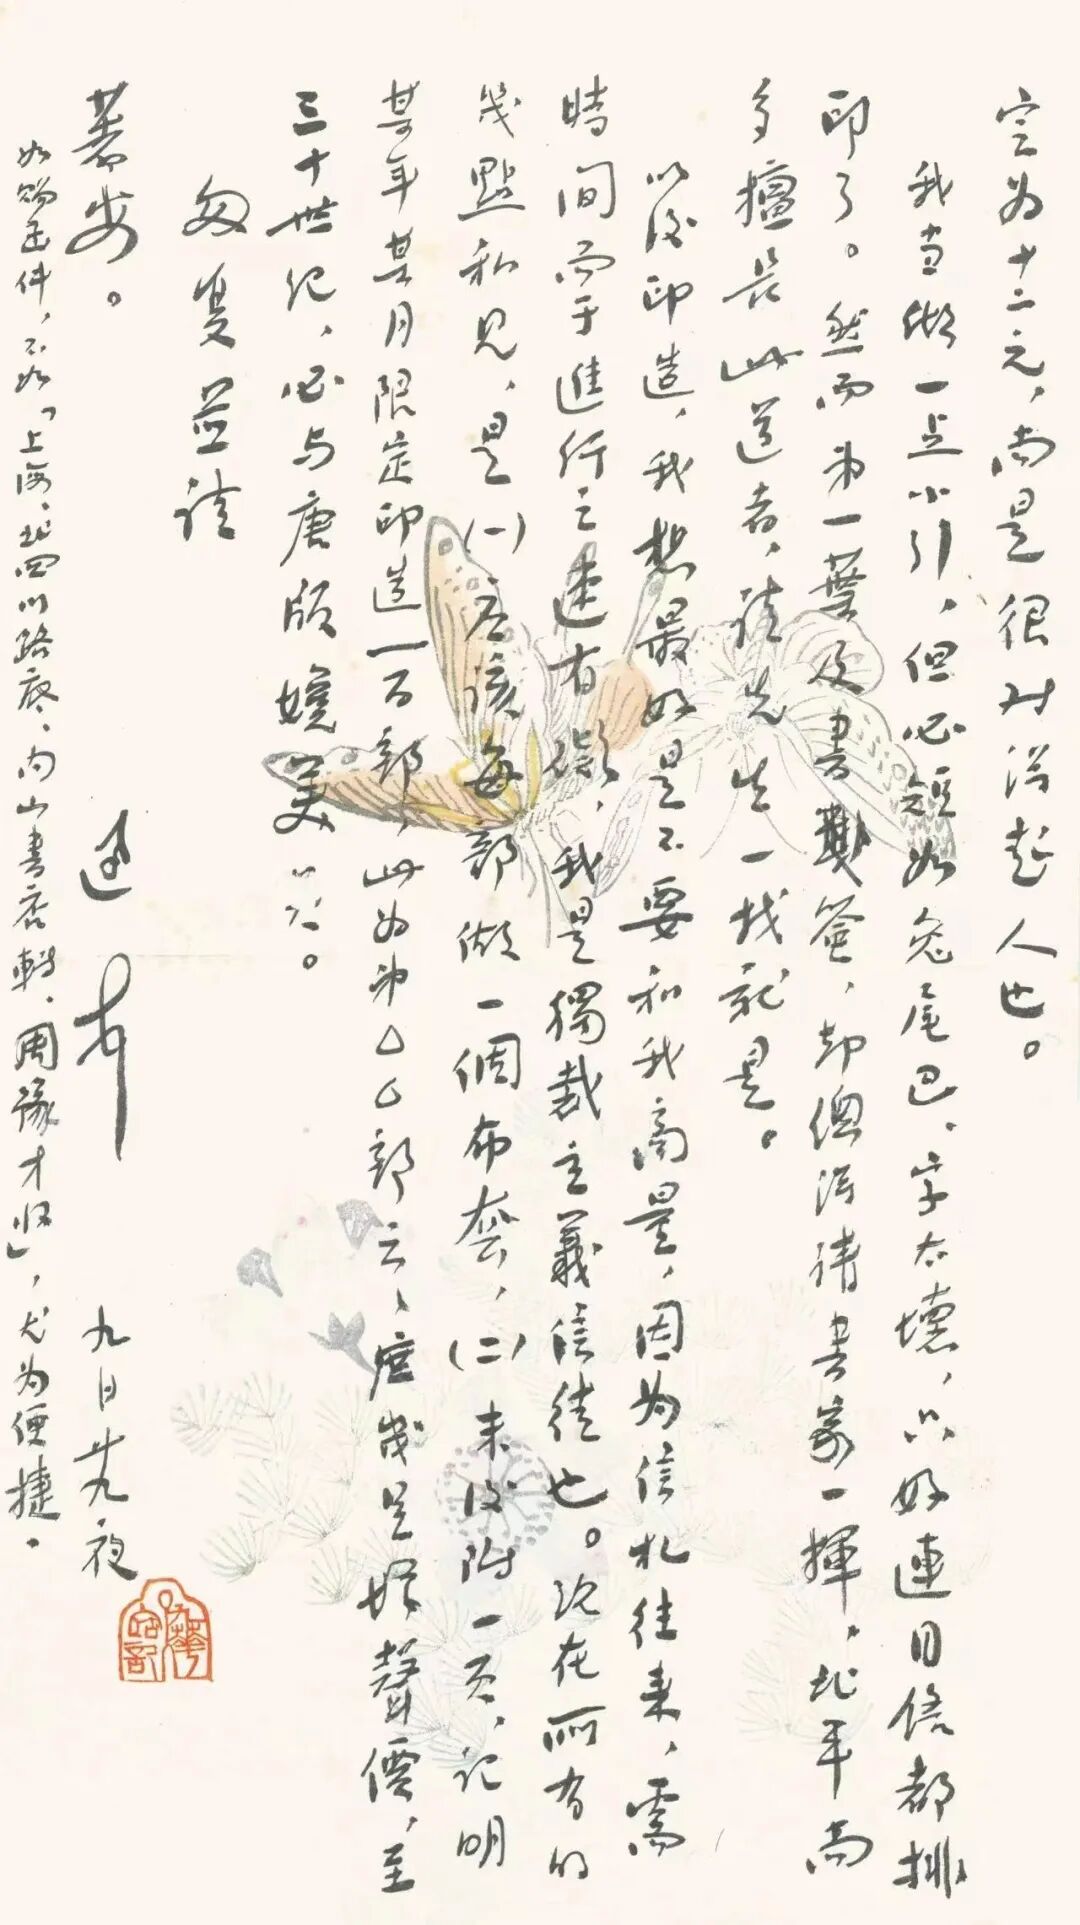 定为十二元,尚是很对得起人也。
我当做一点小引,但必短如兔尾巴,字太壞,只好連目録都排
印了。然而第一葉及書籤,却總得請書家一揮,北平尚
多擅長此道者,請先生一找就是。
以後印造,我想最好是不要和我商量,因为信札往来,需
時间而于進行之速有碍,我是獨裁主義信徒也。现在所有的
幾點私见,是(一)应該每部做一個布套,(二)末後附一页,记明
某年某月限定印造一百部,此为第△△部云云,庶幾足增聲價,至
三十世纪,必与唐版媲美矣。
匆复并請
著安。
迅 上 九月廿九夜
如赐函件,不如「上海、北四川路底、内山書店轉、周豫才收」,尤为便捷。